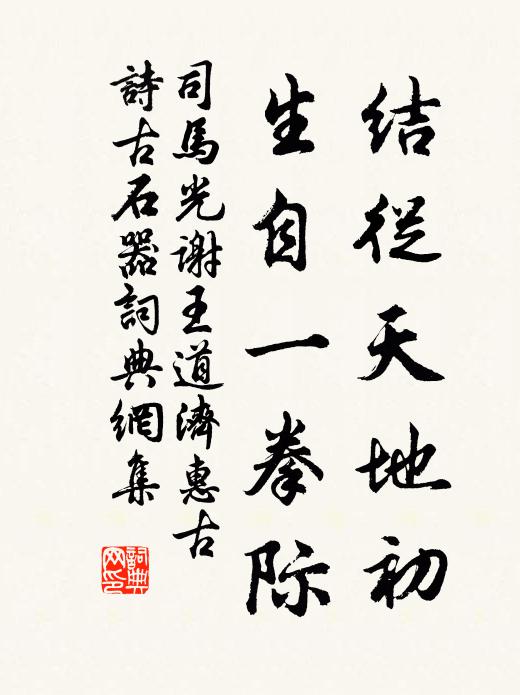 结從天地初
生自一拳际
司馬光謝王道濟惠古
詩古石器詞典網集
詞典
网印